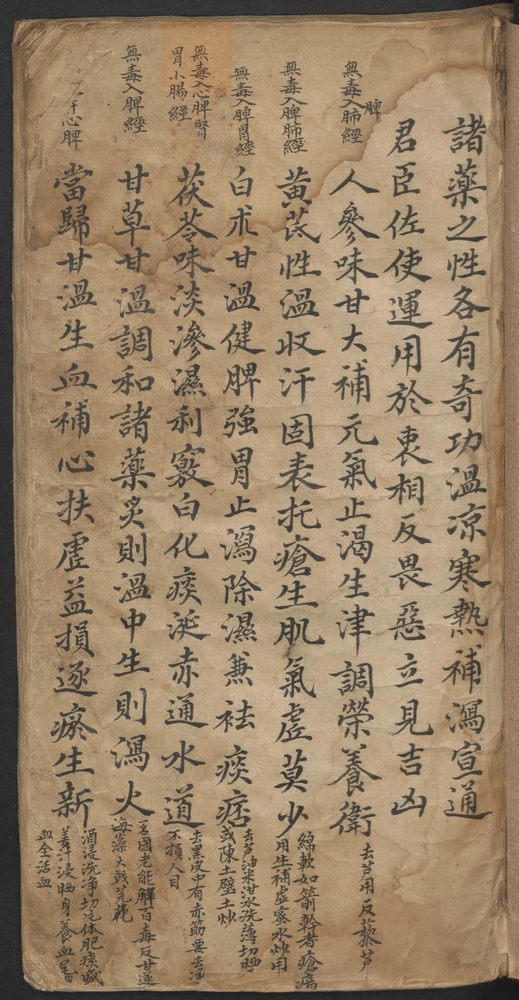 諸藥之性各有奇功溫凉寒熱補瀉宣通
君臣佐使運用於衷相反畏惡立見吉凶
無毒入脾肺經
人參味甘大補元氣止渴生津調榮養衛
去芦用反藜芦
無毒入脾肺經
黃芪性溫收汗固表托瘡生肌氣虛莫少
綿軟如箭幹者瘡瘍
用生補虛蜜水炒用
無毒入脾胃經
白朮甘溫健脾強胃止瀉除濕兼袪痰痞
去芦油米泔水洗薄切晒
或陳土壁土炒
無毒入心脾腎
胃小腸經
茯苓味淡滲濕利竅白化痰涎赤通水道
去黑皮中有赤筋要去淨
不損人目
無毒入脾經
甘草甘溫調和諸藥炙則溫中生則瀉火
名國老能解百毒反甘遂
海藻大戟芫花
肝心脾
當歸甘溫生血補心扶虛益損逐瘀生新
酒浸洗淨切片体肥痰盛
姜汁浸晒身養血尾
血全活血